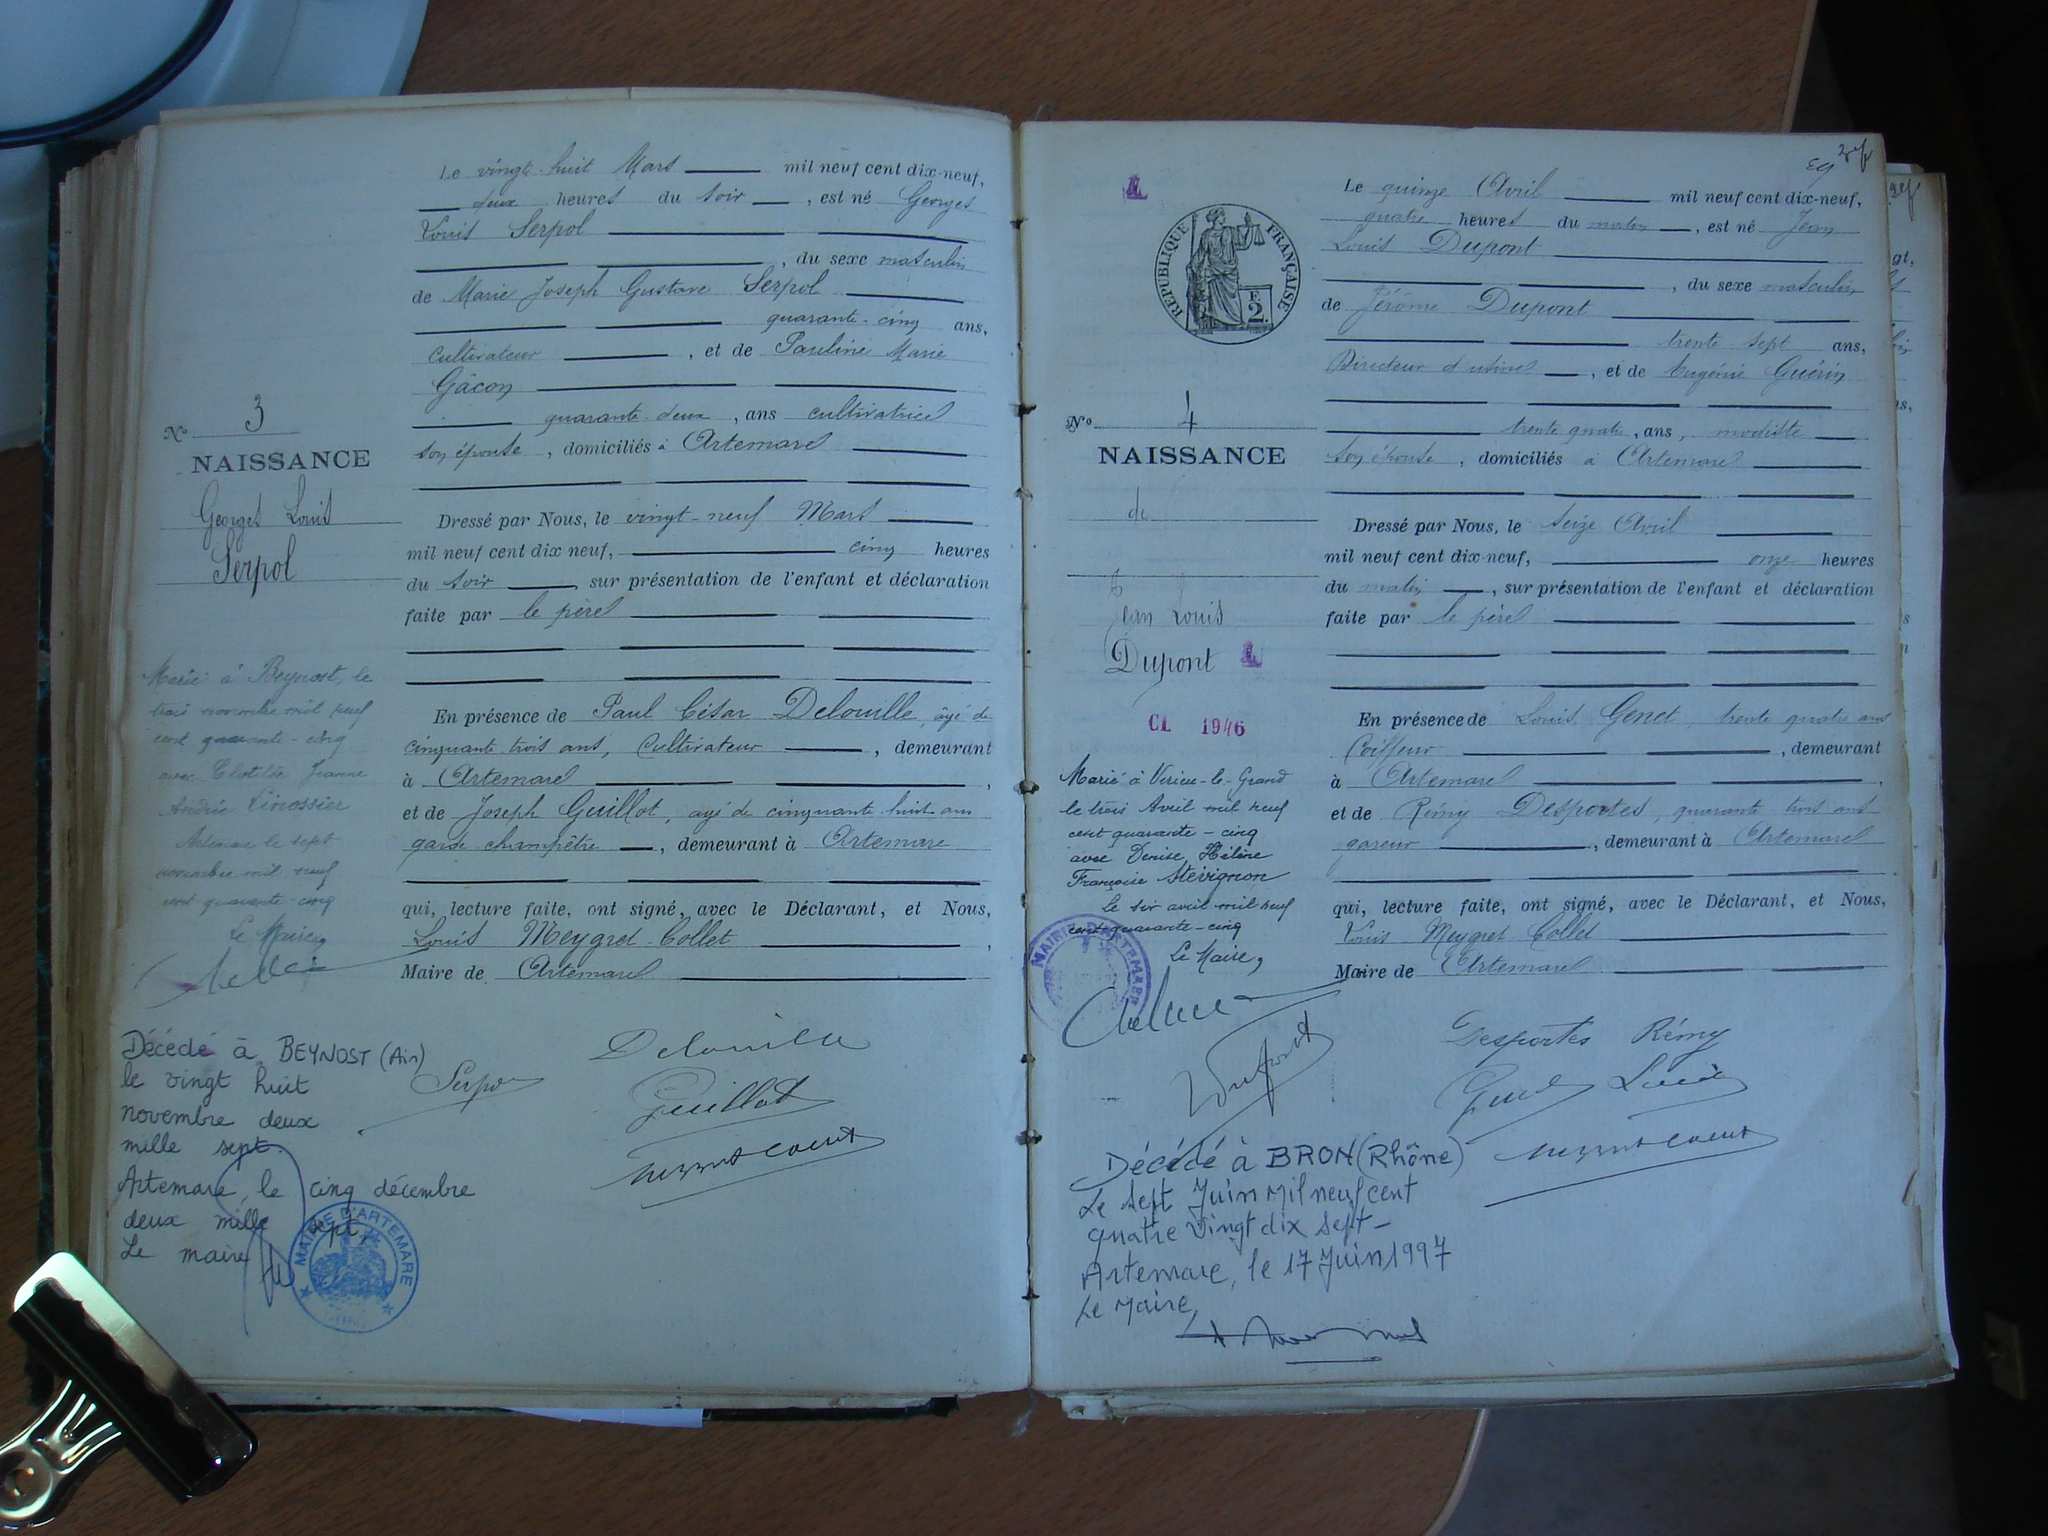 Le vingt-huit Mars mil neuf cent dix-neuf,
deux heures du soir, est né Georges
Louis Serpol
, du sexe masculin
de Marie Joseph Gustave Serpol
quarante-cinq ans,
cultivateur, et de Pauline Marie
Gâcon
quarante-deux, ans cultivatrice
son épouse, domiciliés à Artemare
N° 3
NAISSANCE
Georges Louis
Serpol
Dressé par Nous, le vingt-neuf Mars
mil neuf cent dix neuf, cinq heures
du soir, sur présentation de l'enfant et déclaration
faite par le père
En présence de Paul César Delouille, âgé de
cinquante trois ans, cultivateur, demeurant
à Artemare,
et de Joseph Guillot, âgé de cinquante huit ans
garde champêtre, demeurant à Artemare
qui, lecture faite, ont signé, avec le Déclarant, et Nous,
Louis Meygret-Collet,
Maire de Artemare
Marié à Beynost, le
trois novembre mil neuf
cent quarante-cinq
avec Clotilde Jeanne
Andrée
Artemare le sept
novembre mil neuf
cent quarante-cinq
Le Maire,
Delouille
Serpol
Guillot
Décédé à BEYNOST (Ain)
le vingt huit
novembre deux
mille sept.
Artemare, le cinq décembre
deux mille sept,
Le maire
MAIRIE D'ARTEMARE
RÉPUBLIQUE FRANÇAISE
2
Le quinze Avril mil neuf cent dix-neuf,
quatre heures du matin, est né Jean
Louis Dupont
, du sexe masculin
de Jérôme Dupont
trente sept ans,
Directeur d'usine, et de Eugénie Guérin
trente quatre, ans, modiste
son épouse, domiciliés à Artemare
N° 4
NAISSANCE
de
Jean Louis
Dupont
CL 1946
Dressé par Nous, le seize Avril
mil neuf cent dix-neuf, onze heures
du matin, sur présentation de l'enfant et déclaration
faite par le père
En présence de Louis Genet, trente quatre ans
Coiffeur, demeurant
à Artemare,
et de Rémy Desportes, quarante trois ans
, demeurant à Artemare
qui, lecture faite, ont signé, avec le Déclarant, et Nous,
Louis Meygret Collet
Maire de Artemare
Marié à Virieu-le-Grand
le trois Avril mil neuf
cent quarante-cinq
avec Denise, Hélène
Françoise Stévignon
le six avril mil neuf
cent quarante-cinq
Le Maire,
MAIRIE D'ARTEMARE
Desportes Rémy
Dupont
Genet Louis
Décédé à BRON (Rhône)
Le sept Juin mil neuf cent
quatre vingt dix sept-
Artemare, le 17 Juin 1997
Le Maire,